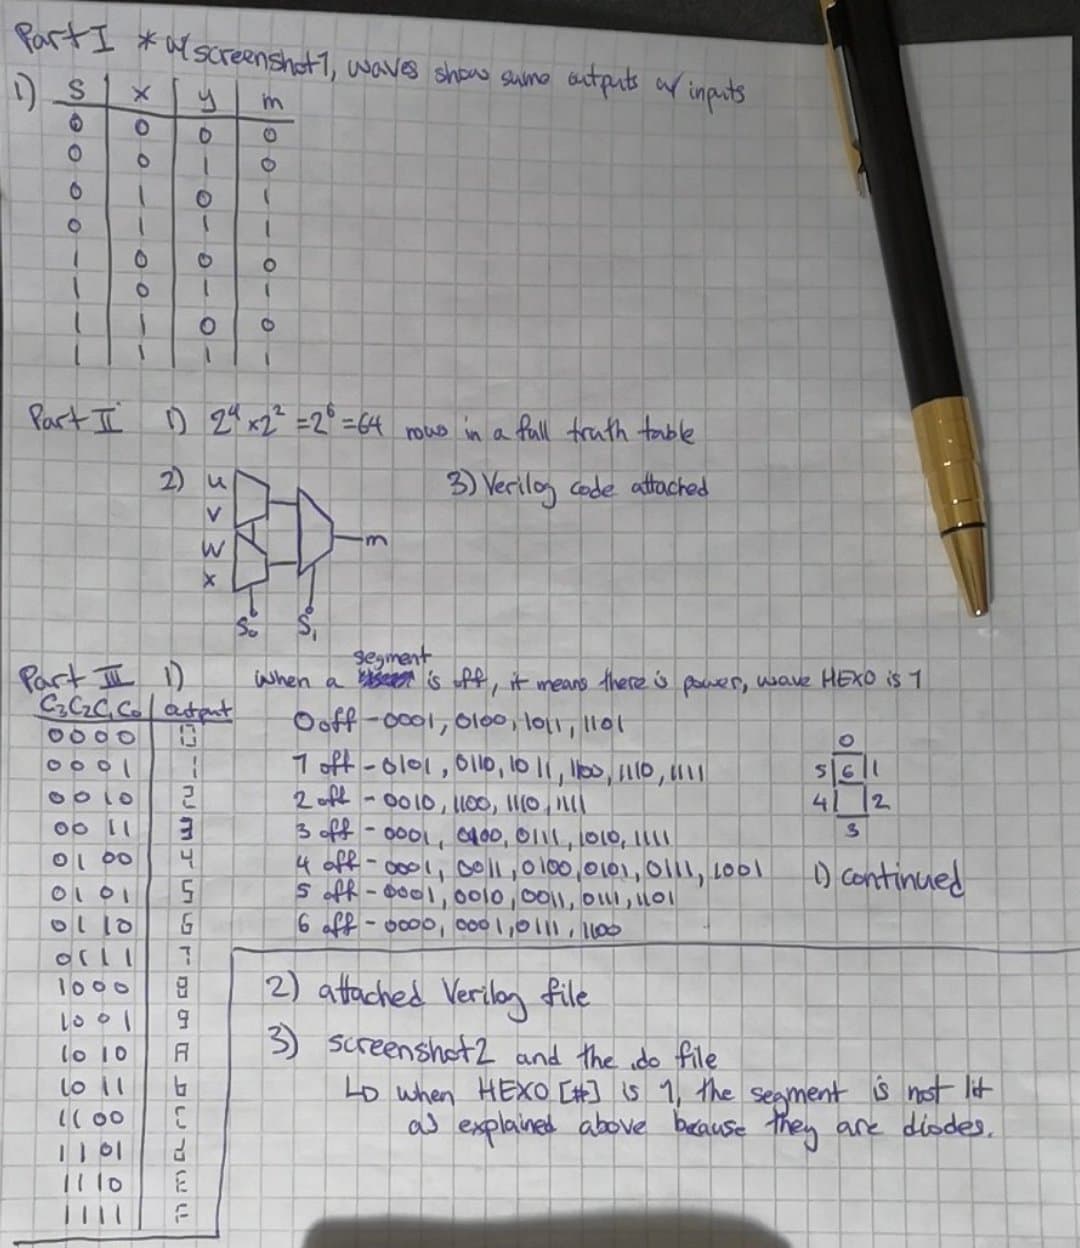 Part I * w/ screenshot1, waves show same outputs w/ inputs
1) S x y m
0 0 0 0
0 0 1 0
0 1 0 1
0 1 1 1
1 0 0 0
1 0 1 1
1 1 0 0
1 1 1 1
Part II 1) 2⁴ x 2² = 2⁶ = 64 rows in a full truth table
2) u
v
w
x
m
S₀ S₁
3) Verilog code attached
Part III 1) when a segment is off, it means there is power, wave HEX0 is 1
C₃C₂C₁C₀ output
0000 0
0001 1
0010 2
0011 3
0100 4
0101 5
0110 6
0111 7
1000 8
1001 9
1010 A
1011 b
1100 C
1101 d
1110 E
1111 F
0 off - 0001, 0100, 1011, 1101
1 off - 0101, 0110, 1011, 1100, 1110, 1111
2 off - 0010, 1100, 1110, 1111
3 off - 0001, 0100, 0111, 1010, 1111
4 off - 0001, 0011, 0100, 0101, 0111, 1001
5 off - 0001, 0010, 0011, 0111, 1101
6 off - 0000, 0001, 0111, 1100
0
5 6 1
4 2
3
1) continued
2) attached Verilog file
3) screenshot2 and the .do file
↳ when HEX0 [#] is 1, the segment is not lit
as explained above because they are diodes.